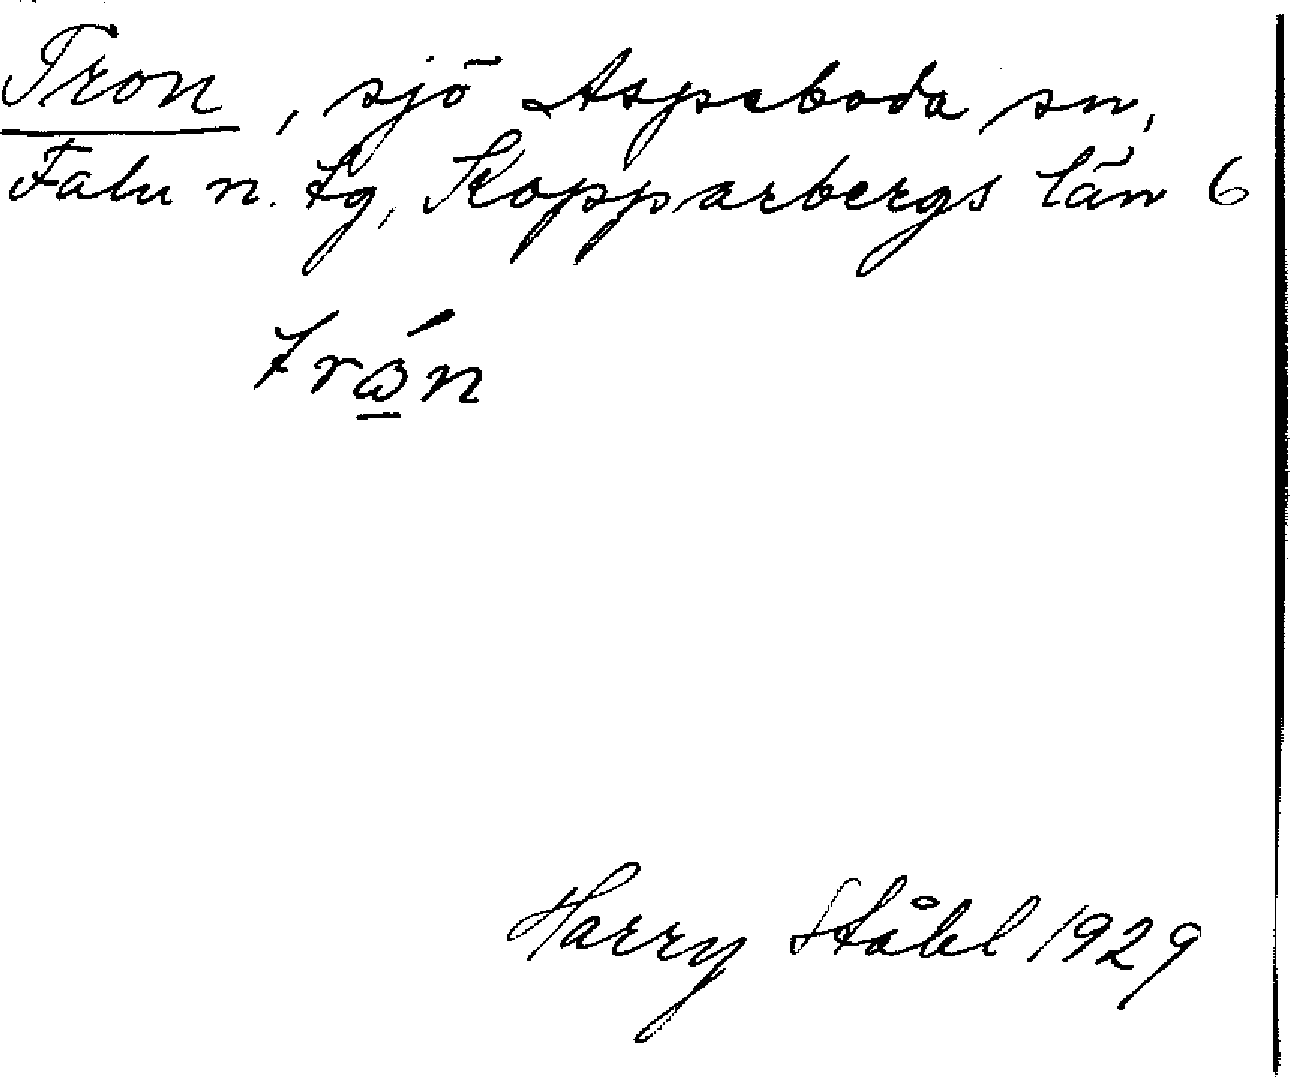 Tron, sjö Aspeboda sn,
Falu n. tg, Kopparbergs län 6
Harry Ståhl 1929